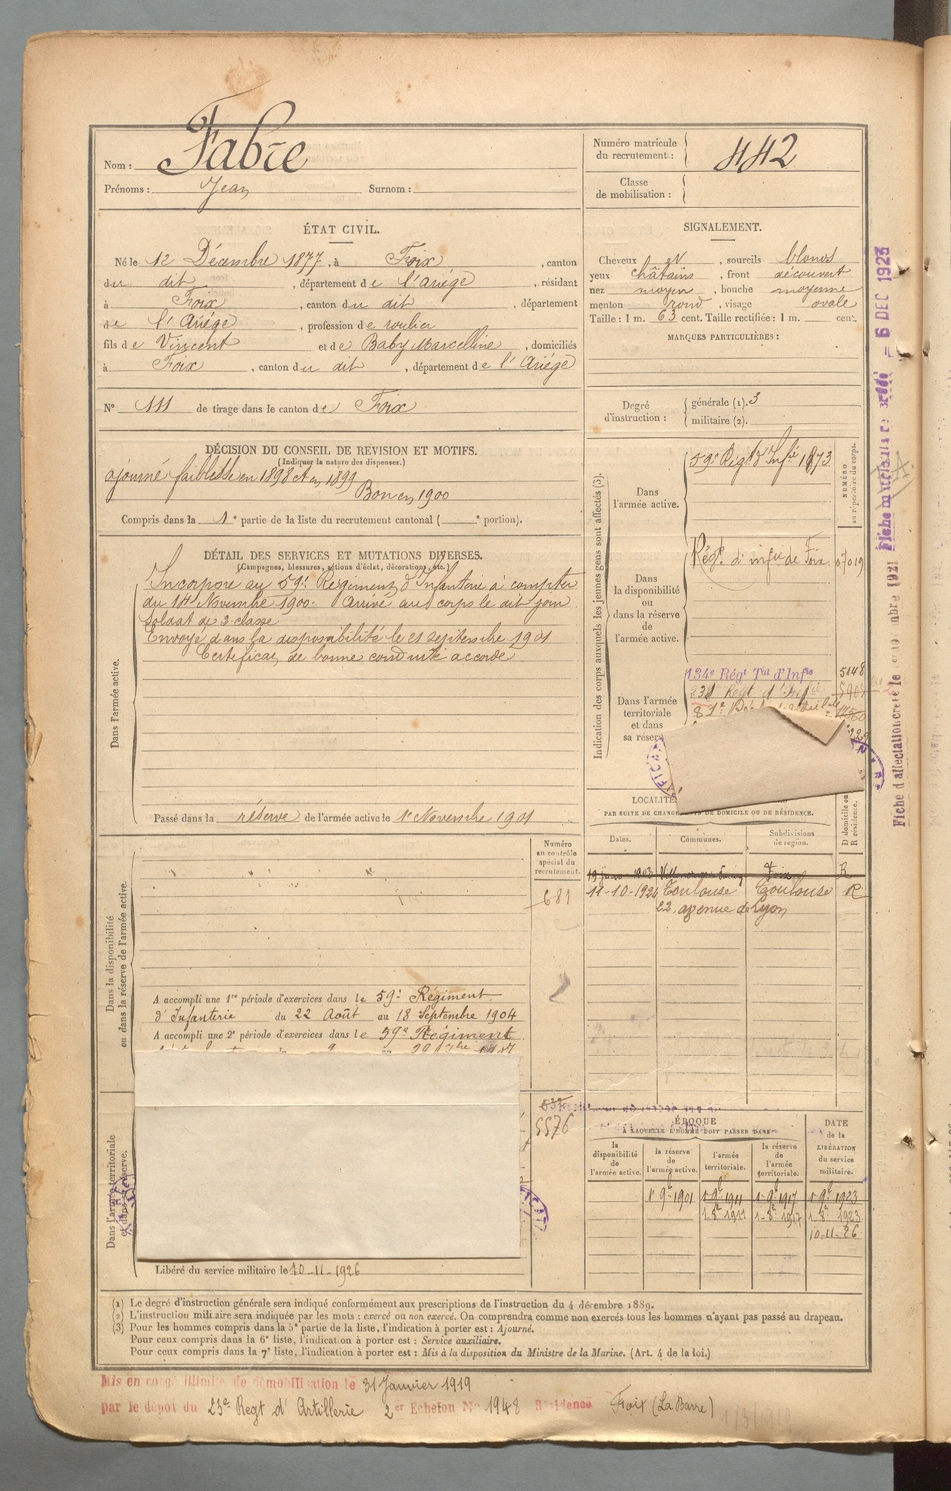 Nom : Fabre
Prénoms : Jean Surnom :
Numéro matricule
du recrutement : 442
Classe
de mobilisation :
ÉTAT CIVIL.
Né le 12 Décembre 1877, à Foix, canton
du dit, département de l'Ariége, résidant
à Foix, canton du dit, département
de l'Ariége, profession de roulier
fils de Vincent et de Baby Marcelline, domiciliés
à Foix, canton du dit, département de l'Ariége
N° 111 de tirage dans le canton de Foix
SIGNALEMENT.
Cheveux et, sourcils blonds
yeux châtains, front découvert
nez moyen, bouche moyenne
menton rond, visage ovale
Taille : 1 m. 63 cent. Taille rectifiée : 1 m. cent.
MARQUES PARTICULIÈRES :
Degré
d'instruction :
générale (1). 3
militaire (2).
DÉCISION DU CONSEIL DE REVISION ET MOTIFS.
(Indiquer la nature des dispenses.)
ajourné faiblesse en 1898 et en 1899
Bon en 1900
Compris dans la 1e partie de la liste du recrutement cantonal ( e portion).
DÉTAIL DES SERVICES ET MUTATIONS DIVERSES.
(Campagnes, blessures, actions d'éclat, décorations, etc.)
Dans l'armée active.
Incorporé au 59e Régiment d'Infanterie à compter
du 14 Novembre 1900. Arrivé au corps le dit jour
Soldat de 2e classe
Envoyé dans la disponibilité le 21 septembre 1901
Certificat de bonne conduite accordé
Passé dans la réserve de l'armée active le 1er Novembre 1901
Indication des corps auxquels les jeunes gens sont affectés (3).
NUMÉRO
au répertoire du corps.
Dans
l'armée active.
59e Régt d'Infie 1873
Dans
la disponibilité
ou
dans la réserve
de
l'armée active.
Régt d'infie de Foix 07019
Dans l'armée
territoriale
et dans
sa réserve
134e Régt Tal d'Infie 5148
LOCALITÉ
PAR SUITE DE CHANGEMENTS DE DOMICILE OU DE RÉSIDENCE.
Dates. Communes. Subdivisions
de région.
D domicile ou
R résidence.
Foix R
11-10-1924 Toulouse Toulouse R
22 avenue de Lyon
Dans la disponibilité
ou dans la réserve de l'armée active.
Numéro
au contrôle
spécial du
recrutement.
681
A accompli une 1re période d'exercices dans le 59e Régiment
d'Infanterie du 22 Août au 18 Septembre 1904
A accompli une 2e période d'exercices dans le 59e Régiment
Dans l'armée territoriale
et dans sa réserve.
5576
Libéré du service militaire le 10-11-1926
ÉPOQUE
A LAQUELLE L'HOMME DOIT PASSER DANS
la
disponibilité
de
l'armée active.
la réserve
de
l'armée active.
l'armée
territoriale.
la réserve
de
l'armée
territoriale.
DATE
de la
LIBÉRATION
du service
militaire.
1er 9bre 1901 1er 9bre 1911 1er 9bre 1917 1er 9bre 1923
1er 8bre 1911 1er 8bre 1917 1er 8bre 1923
10-11-26
(1) Le degré d'instruction générale sera indiqué conformément aux prescriptions de l'instruction du 4 décembre 1889.
(2) L'instruction militaire sera indiquée par les mots : exercé ou non exercé. On comprendra comme non exercés tous les hommes n'ayant pas passé au drapeau.
(3) Pour les hommes compris dans la 5e partie de la liste, l'indication à porter est : Ajourné.
Pour ceux compris dans la 6e liste, l'indication à porter est : Service auxiliaire.
Pour ceux compris dans la 7e liste, l'indication à porter est : Mis à la disposition du Ministre de la Marine. (Art. 4 de la loi.)
Mis en congé illimité de démobilisation le 31 Janvier 1919
par le dépôt du 23e Régt d'Artillerie 2er Echelon N° 1948 Résidence Foix (La Barre)
6 DEC 1923